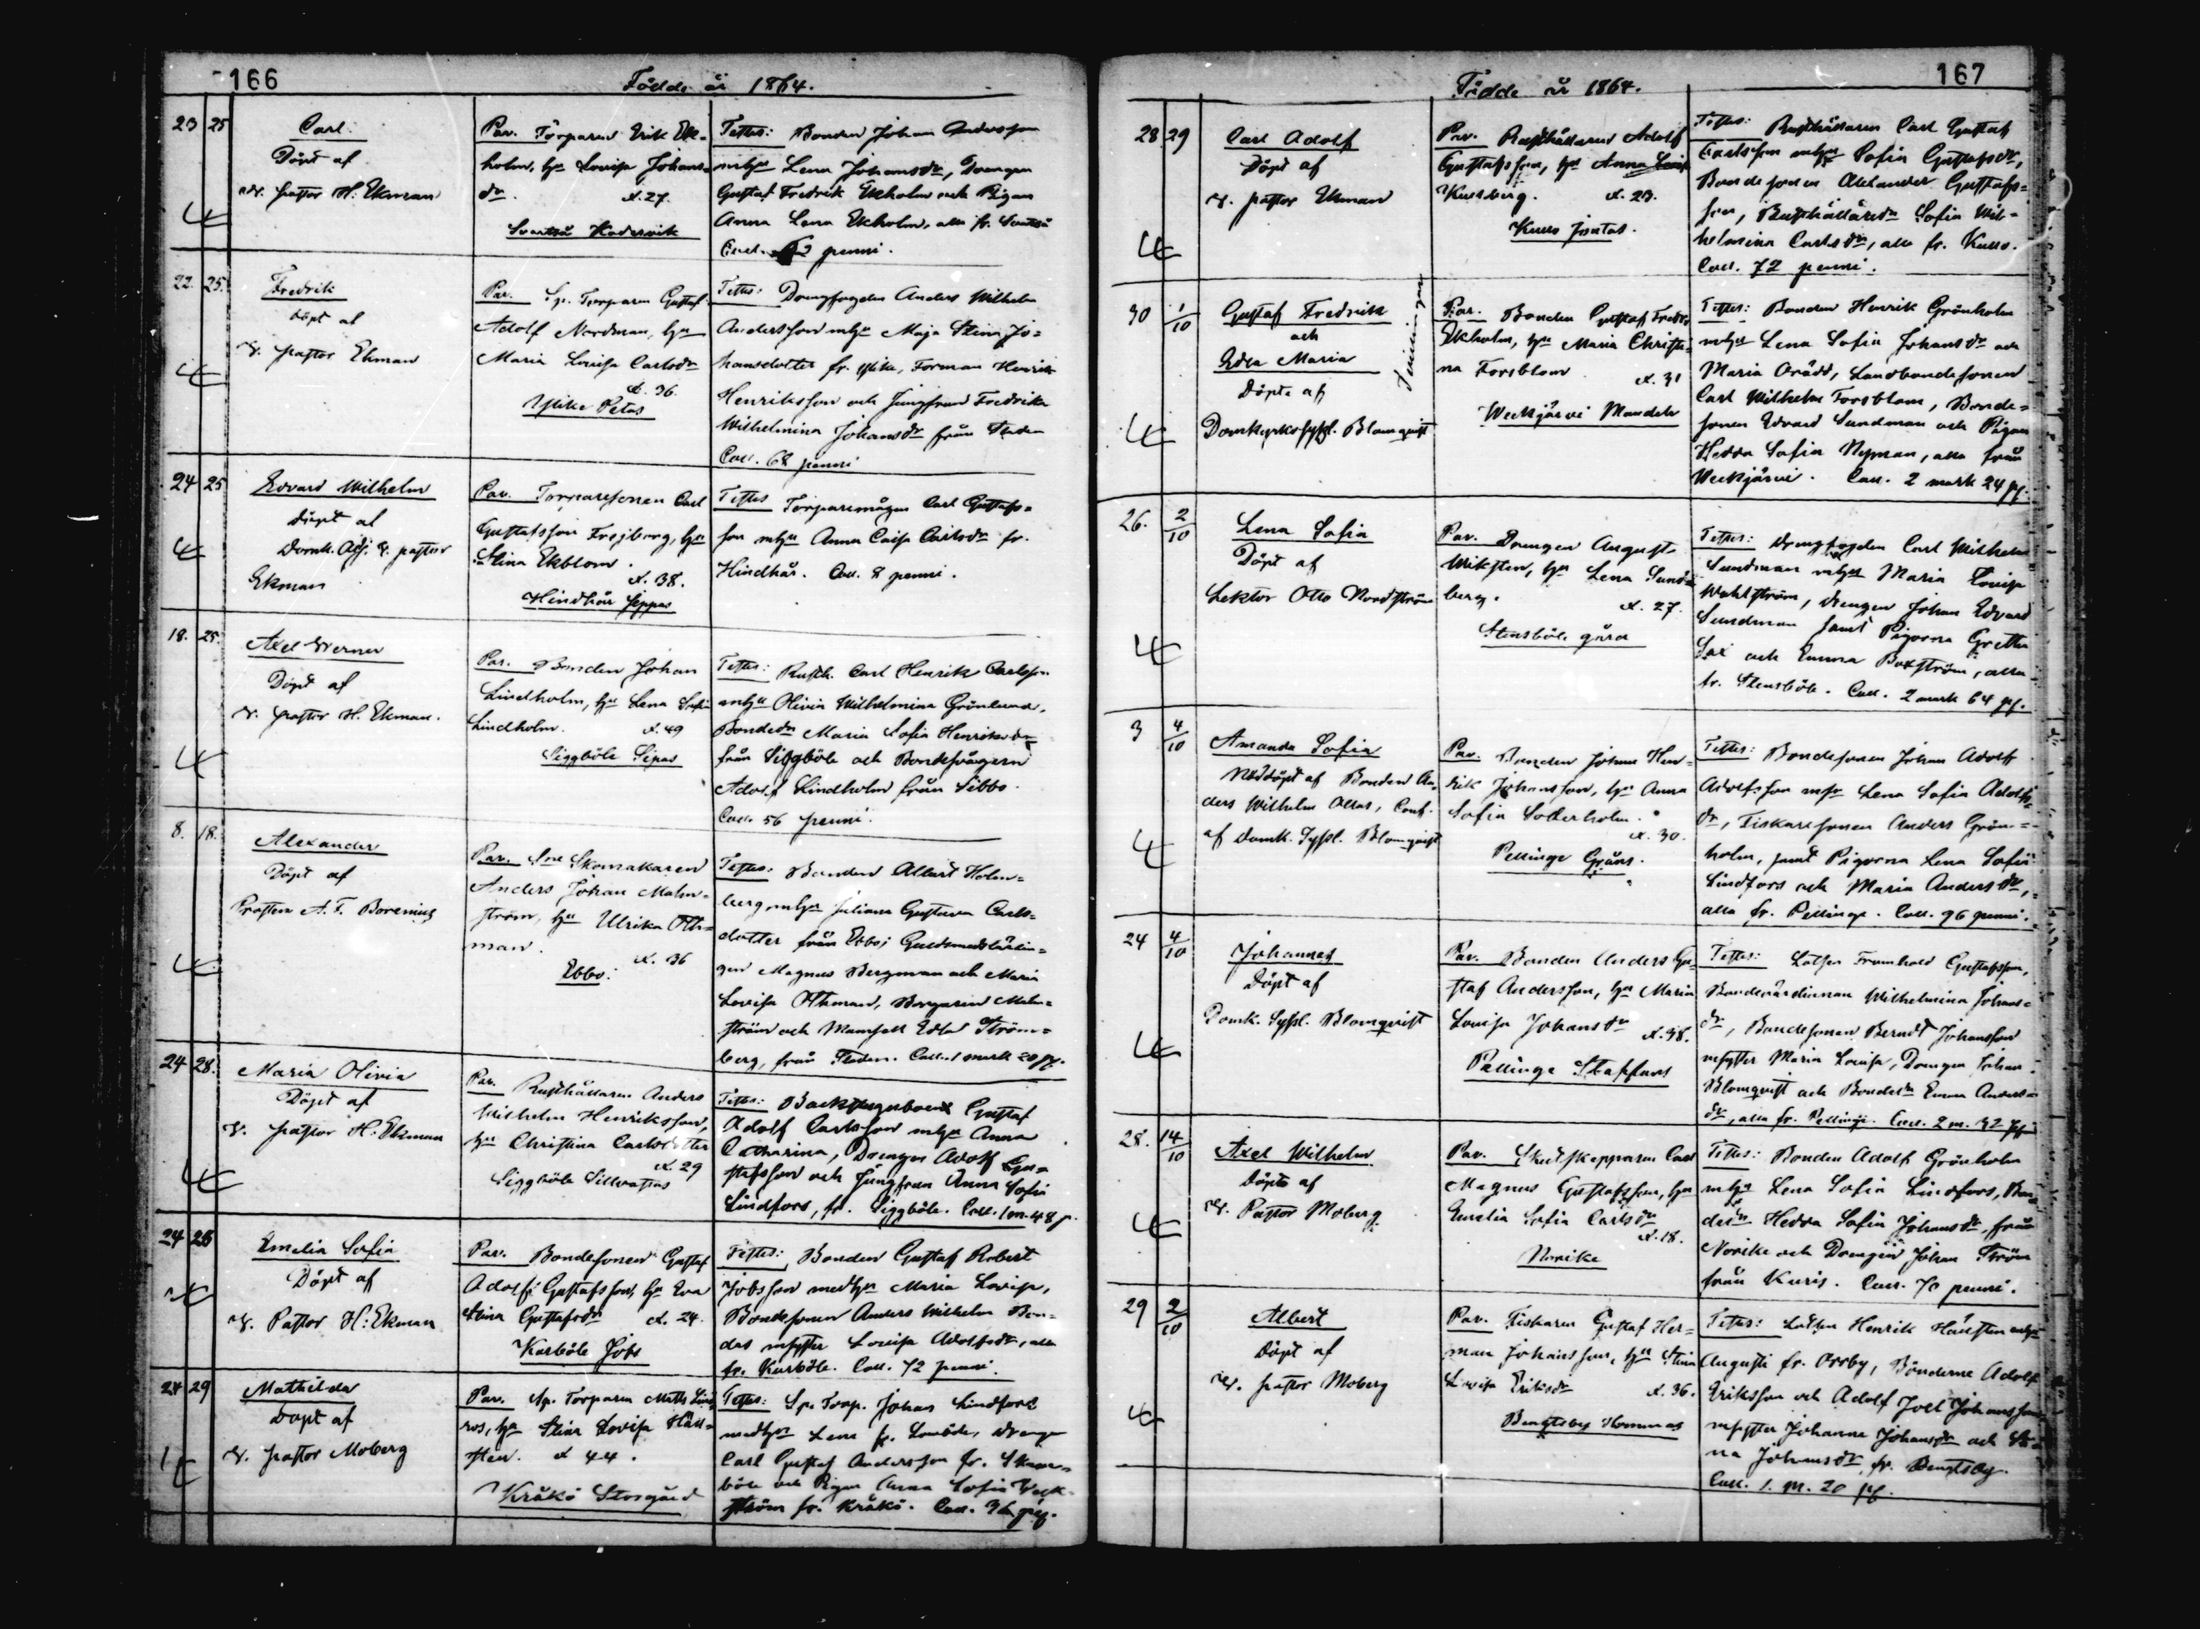 166
Födde år 1864.
23 25
Carl
Döpt af
v. pastor H. Ekman
Par. Torparen Erik Ek-
holm, hu Lovisa Johans-
dr. å. 27.
Svartså Hadersvik
Testes: Bonden Johan Andersson
mhu Lena Johansdr, Drängen
Gustaf Fredrik Ekholm och Pigan
Anna Lena Ekholm, alla fr. Svartså
Coll. penni.
22. 25.
Fredrik
döpt af
v. pastor Ekman
Par. Sp. Torparen Gustaf
Adolf Nordman, hu
Maria Lovisa Carlsdr
å. 36.
Ylike Petas
Testes: Drengfogden Anders Wilhelm
Andersson mhu Maja Stina Jo-
hansdotter fr. Ylike, Forman Henrik
Henriksson och Jungfrun Fredrika
Wilhelmina Johansdr från Staden
Coll. 68 penni
24 25
Edvard Wilhelm
döpt af
Domk. Adj. v. pastor
Ekman
Par. Torparesonen Carl
Gustafsson Frejborg, hu
Stina Ekblom.
å. 38.
Hindhår Jeppas
Testes Torparemågen Carl Gustafs-
son mhu Anna Caisa Carlsdr fr.
Hindhår. Coll. 8 penni.
18. 25.
Axel Werner
Döpt af
v. pastor H. Ekman.
Par. Bonden Johan
Lindholm, hu Lena Sofia
Lindholm. å. 49
Siggböle Sipas
Testes: Rusth. Carl Henrik Carlsson
mhu Olivia Wilhelmina Grönlund,
Bondedr Maria Sofia Henriksdr
från Siggböle och Bondesvågern
Adolf Lindholm från Sibbo.
Coll. 56 penni.
8. 18.
Alexander
Döpt af
Prosten A. F. Borenius
Par. Skomakaren
Anders Johan Malm-
ström, hu Ulrika Öth-
man.
å. 36
Ebbo.
Testes: Bonden Albert Holm-
berg mhu Juliana Gustava Carls-
dotter från Ebbo; Guldsmedslärlin-
gen Magnus Bergman och Maria
Lovisa Öthman, Borgaren Malm-
ström och Mamsell Edla Ström-
berg, från Staden. Coll. 1 mark 20 p.
24 28.
Maria Olivia
Döpt af
v. pastor H. Ekman
Par. Rusthållaren Anders
Wilhelm Henriksson,
hu Christina Carlsdotter
å. 29
Siggböle Sillvastas
Testes: Backstuguboen Gustaf
Adolf Carlsson mhu Anna
Catharina, Drengen Adolf Gu-
stafsson och Jungfrun Anna Sofia
Lindfors, fr. Siggböle. Coll. 1 m. 48 p.
24 26
Emelia Sofia
Döpt af
v. Pastor H. Ekman
Par. Bondesonen Gustaf
Adolf Gustafsson, hu Eva
Stina Gustafsdr å. 24.
Karböle Jobs
Testes: Bonden Gustaf Robert
Jobsson medhu Maria Lovisa,
Bondesonen Anders Wilhelm Bon-
das msyster Lovisa Adolfsdr, alla
fr. Karböle. Coll. 72 penni.
24 29
Mathilda
Döpt af
v. pastor Moberg
Par. Sp. Torparen Matts Lind
ros, hu Stina Lovisa Häll-
sten. å 44.
Kråkö Storgård
Testes: Sp. Torp. Johan Lindfors
medhu Lena fr. drengen
Carl Gustaf Andersson fr. Skaven-
böle och Pigan Anna Sofia Veck-
ström fr. Kråkö. Coll. 36 p.
167
Födde år 1864.
28 29
Carl Adolf
Döpt af
v. pastor Ekman
Par. Rusthållaren Adolf
Gustafsson, hu Anna
Kullberg. å. 23.
Kullo Joatas.
Testes: Rusthållaren Carl Gustaf
Carlsson mhu Sofia Gustafsdr,
Bondesonen Alexander Gustafs-
son, Rusthållaredr Sofia Wil-
helmina Carlsdr, alla fr. Kullo.
Coll. 72 penni.
30 1/10
Gustaf Fredrik
och
Edla Maria
Tvillingar
Döpte af
Domkyrkosyssl. Blomqvist
Par. Bonden Gustaf Fredr.
Ekholm, hu Maria Christi-
na Forsblom å. 31
Weckjärvi Mandels
Testes: Bonden Henrik Grönholm
mhu Lena Sofia Johansdr och
Maria Orädd, Landbondesonen
Carl Wilhelm Forsblom, Bonde-
sonen Edvard Sundman och Pigan
Hedda Sofia Nyman, alla från
Weckjärvi. Coll. 2 mark 24 p.
26. 2/10
Lena Sofia
Döpt af
Lektor Otto Nordström
Par. Drengen August
Wiksten, hu Lena Sund-
berg. å. 27.
Stensböle gård
Testes: Drengfogden Carl Wilhelm
Sundman mhu Maria Lovisa
Wahlström, drengen Johan Edvard
Sundman samt Pigorna Gretha
Sax och Emma Boxström, alla
fr. Stensböle. Coll. 2 mark 64 p.
3 4/10
Amanda Sofia
Nöddöpt af Bonden An-
ders Wilhelm Ollas, Conf.
af Domk. Syssl. Blomqvist
Par. Bonden Johan Hen-
rik Johansson, hu Anna
Sofia Söderholm.
å. 30.
Pellinge Gråns.
Testes: Bondesonen Johan Adolf
Adolfsson mhu Lena Sofia Adolfs
dr, Fiskaresonen Anders Grön-
holm, samt Pigorna Lena Sofia
Lindfors och Maria Andersdr,
alla fr. Pellinge. Coll. 96 penni.
24 4/10
Johannes
Döpt af
Domk. Syssl. Blomqvist
Par. Bonden Anders Gu-
staf Andersson, hu Maria
Lovisa Johansdr å. 38.
Pellinge Staffans
Testes: Lotsen Fromhold Gustafsson,
Bondevärdinnan Wilhelmina Johans-
dr, Bondesonen Berndt Johansson
msyster Maria Lovisa, Drengen Johan
Blomqvist och Bondedr Emma Anders-
dr, alla fr. Pellinge. Coll. 2 m. 32 p.
28. 14/10
Axel Wilhelm
Döpt af
v. Pastor Moberg
Par. Skutskepparen Carl
Magnus Gustafsson, hu
Emelia Sofia Carlsdr
å. 18.
Norike
Testes: Bonden Adolf Grönholm
mhu Lena Sofia Lindfors, Bon-
dedr Hedda Sofia Johansdr från
Norike och Drengen Johan Ström
från Kuris. Coll. 70 penni.
29 2/10
Albert
Döpt af
v. pastor Moberg
Par. Fiskaren Gustaf Her-
man Johansson, hu Stina
Lovisa Eriksdr å. 36.
Bengtsby Hommas
Testes: Lotsen Henrik Hällsten mhu
Augusta fr. Orrby, Bönderne Adolf
Eriksson och Adolf Joel Johansson
msyster Johanna Johansdr och Sti-
na Johansdr, fr. Bengtsby.
Coll. 1. m. 20 p.